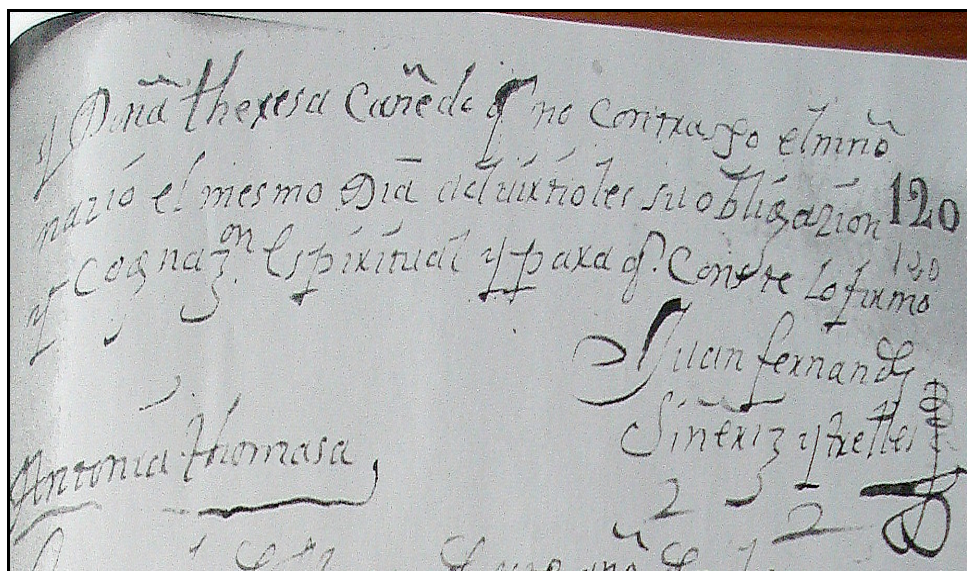 y Doña theresa Cañedo q no contraxo el niño
nazio el mesmo Dia advirtioles su obligazion
120
y Cognaz.on espiritual y para q.e Conste lo firmo
120
Juan fernandz
Siñeriz y trelles
Antonia thomasa